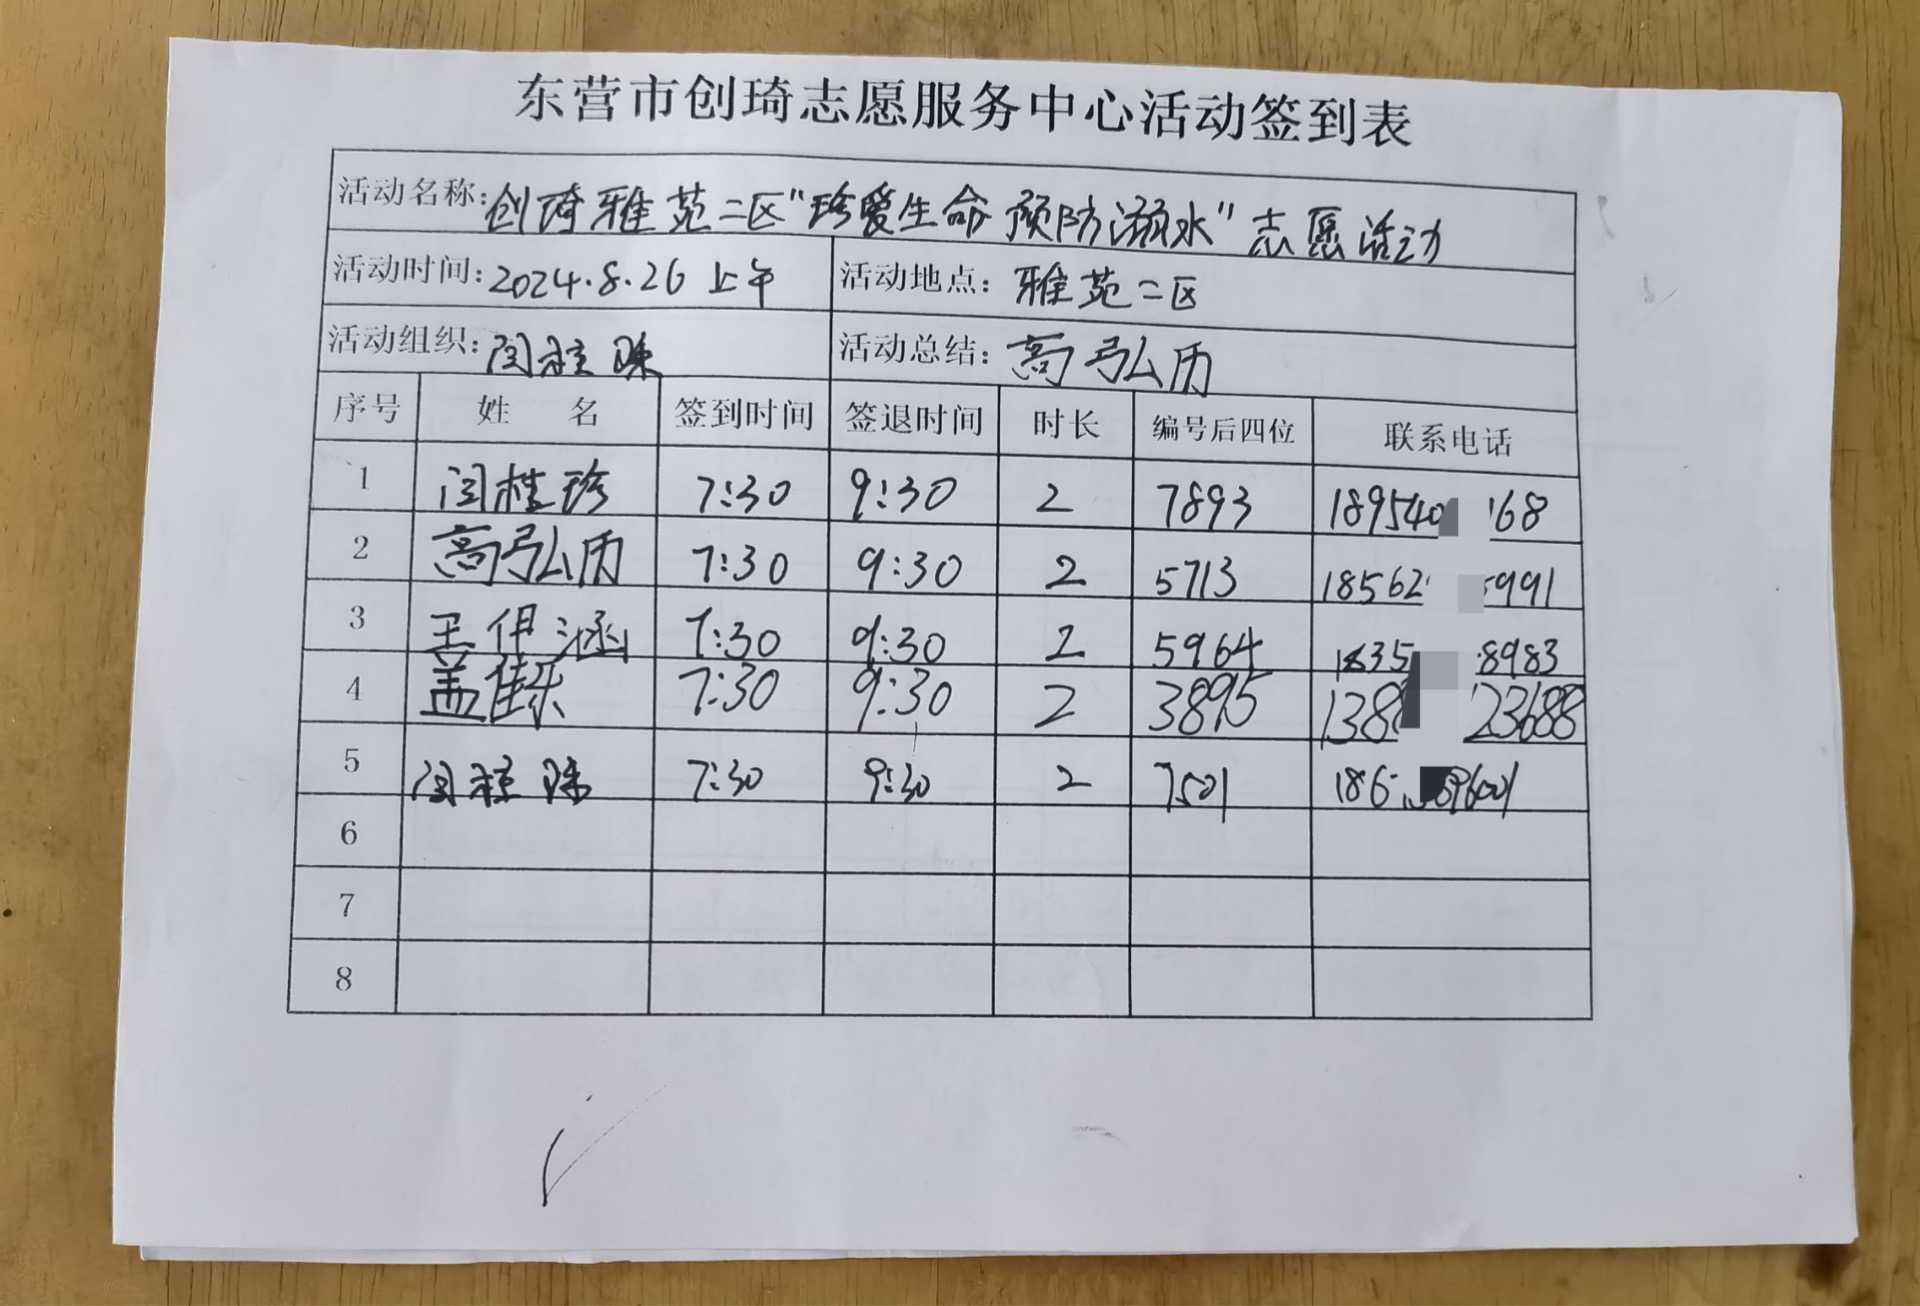 东营市创琦志愿服务中心活动签到表
活动名称:创琦雅苑二区"珍爱生命 预防溺水"志愿活动
活动时间:2024.8.26 上午 活动地点:雅苑二区
活动组织:闫桂珠 活动总结:高弘历
序号 姓 名 签到时间 签退时间 时长 编号后四位 联系电话
1 闫桂珍 7:30 9:30 2 7893 189540 168
2 高弘历 7:30 9:30 2 5713 18562 5991
3 王伊涵 7:30 9:30 2 5964 1835 8983
4 盖佳乐 7:30 9:30 2 3895 138 23688
5 闫桂珠 7:30 9:30 2 7501 186 89601
6
7
8